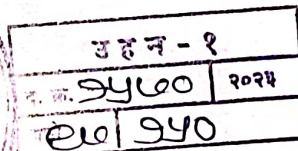 उहन - १
द. क्र. १५७० २०२५
१५०